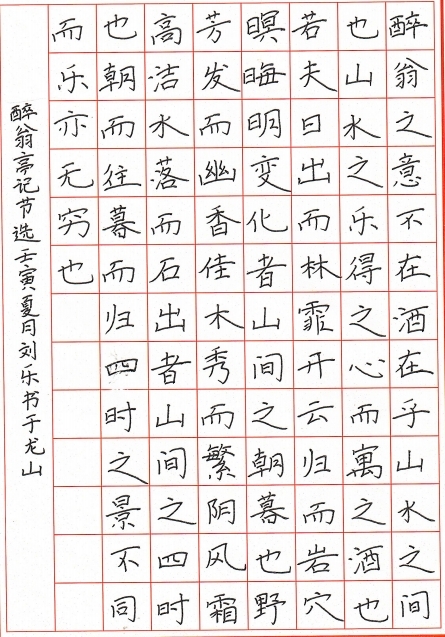 醉翁之意不在酒在乎山水之间
也山水之乐得之心而寓之酒也
若夫日出而林霏开云归而岩穴
暝晦明变化者山间之朝暮也野
芳发而幽香佳木秀而繁阴风霜
高洁水落而石出者山间之四时
也朝而往暮而归四时之景不同
而乐亦无穷也
醉翁亭记节选壬寅夏月刘乐书于龙山